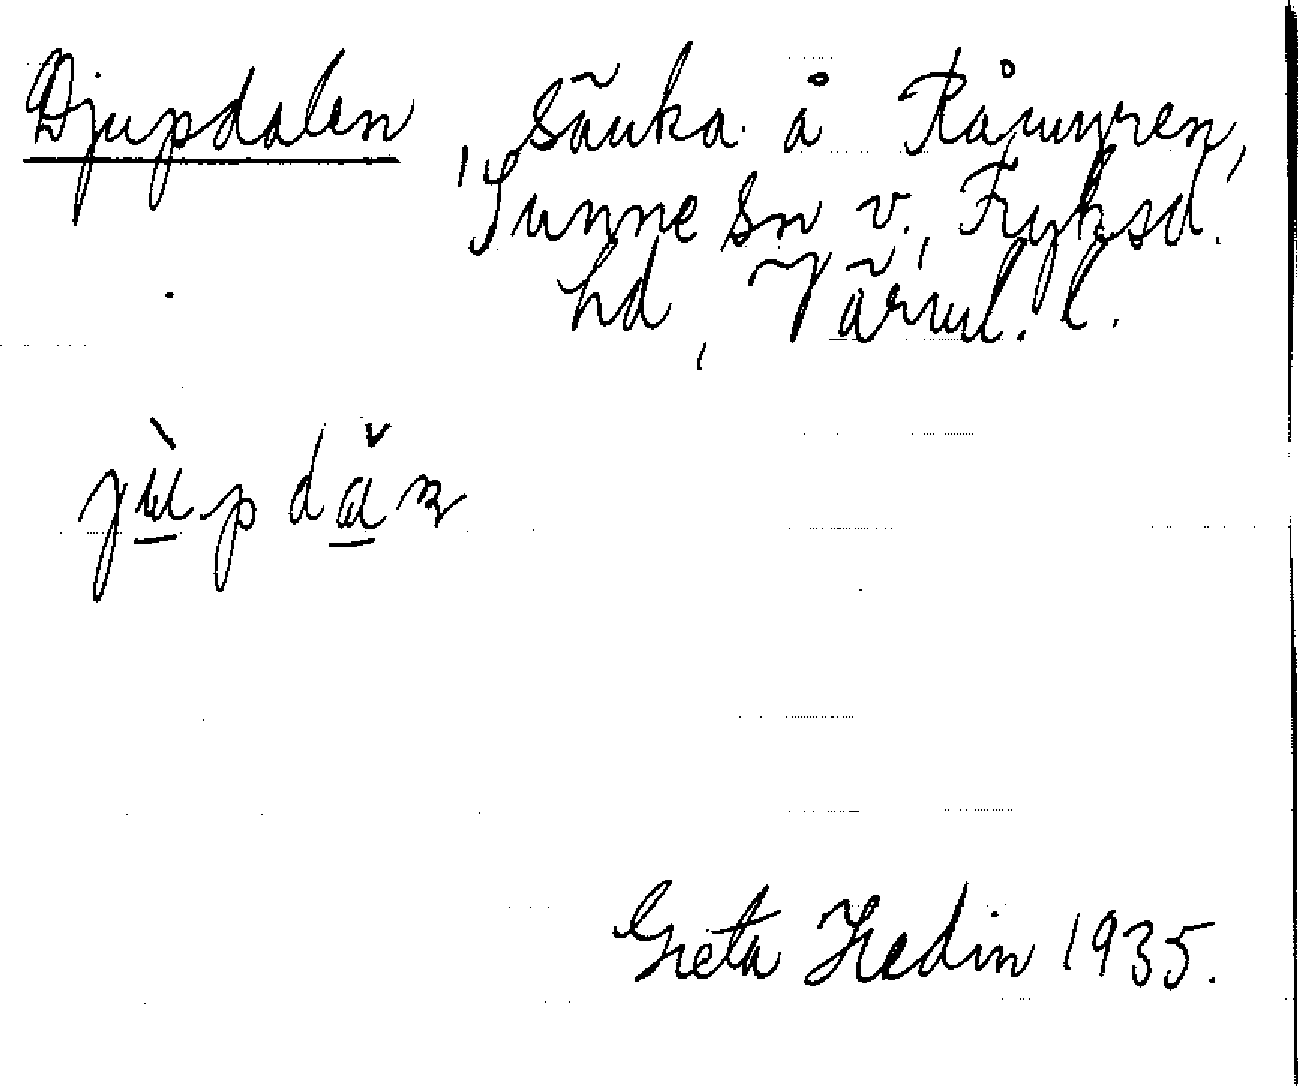 Djupdalen, sänka å Råmyren,
Sunne sn v., Fryksd.
hd, Värml. l.
jùpdǎn
Greta Hedin 1935.